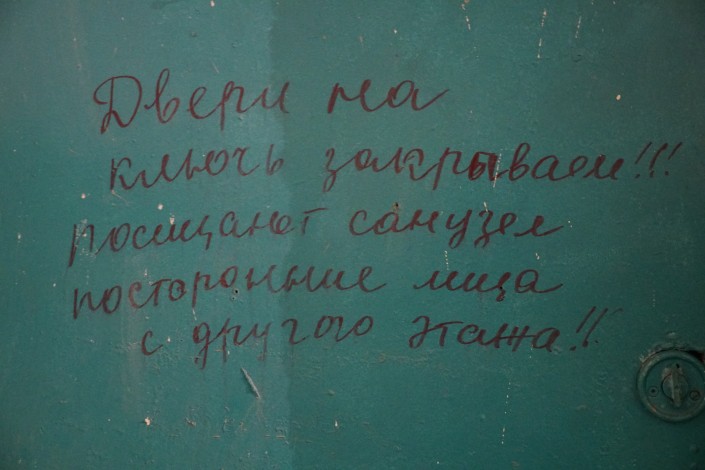 Двери на
ключь закрываем!!!
посищают санузел
посторонние лица
с другого этажа!!